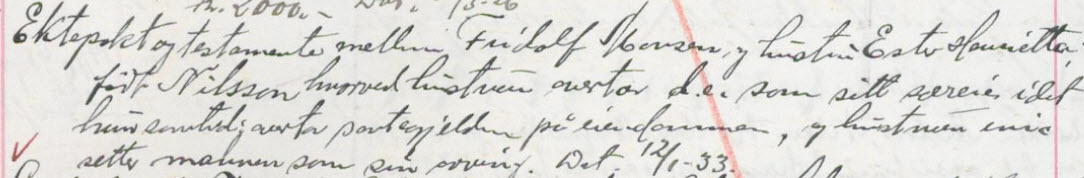 kr. 2000.- Dat. 1/5-26
Ektepakt og testamente mellem Fridolf Monsen og hustru Ester Henrietta
født Nilsson hvorved hustruen overtar d.e. som sitt særeie, idet
hun samtidig overtar pantegjelden på eiendommen, og hustruen inn-
setter mannen som sin arving. Dat. 12/1-33.